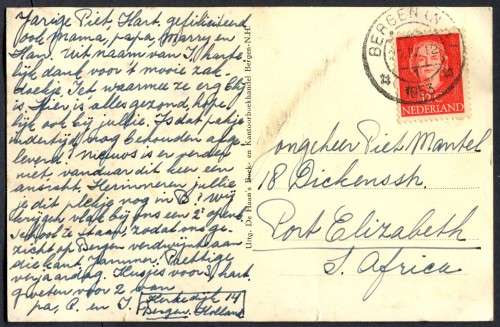 Jarige Piet, Hart. gefeliciteerd
ook Mama, papa, Marry en
Hans. Uit naam van I. harte-
lijk dank voor 't mooie zak-
doekje. Iet waarmee ze erg blij
is. Hier is alles gezond, hope-
lijk ook bij jullie. Is dat pakje
indertijd nog behouden aan-
geland? Nieuws is er verder
niet, vandaar dit keer een
ansicht. Herinneren jullie
je dit plekje nog in B? Wij
krijgen vlak bij ons een 2e openb.
school te staan, zodat ons ge-
zicht op Bergen verdwijnt aan
die kant. Jammer. Prettige
verjaardag. Kusjes voor 3, hart.
groeten voor 2 van
pa, C. en I.
Kerkedijk 14
Bergen. Holland
Uitg. De Haan's Boek- en Kantoorboekhandel Bergen-N.H.
BERGEN (N
1953
NEDERLAND
Jongeheer Piet Mantel
18 Dickensstr.
Port Elizabeth
S. Africa